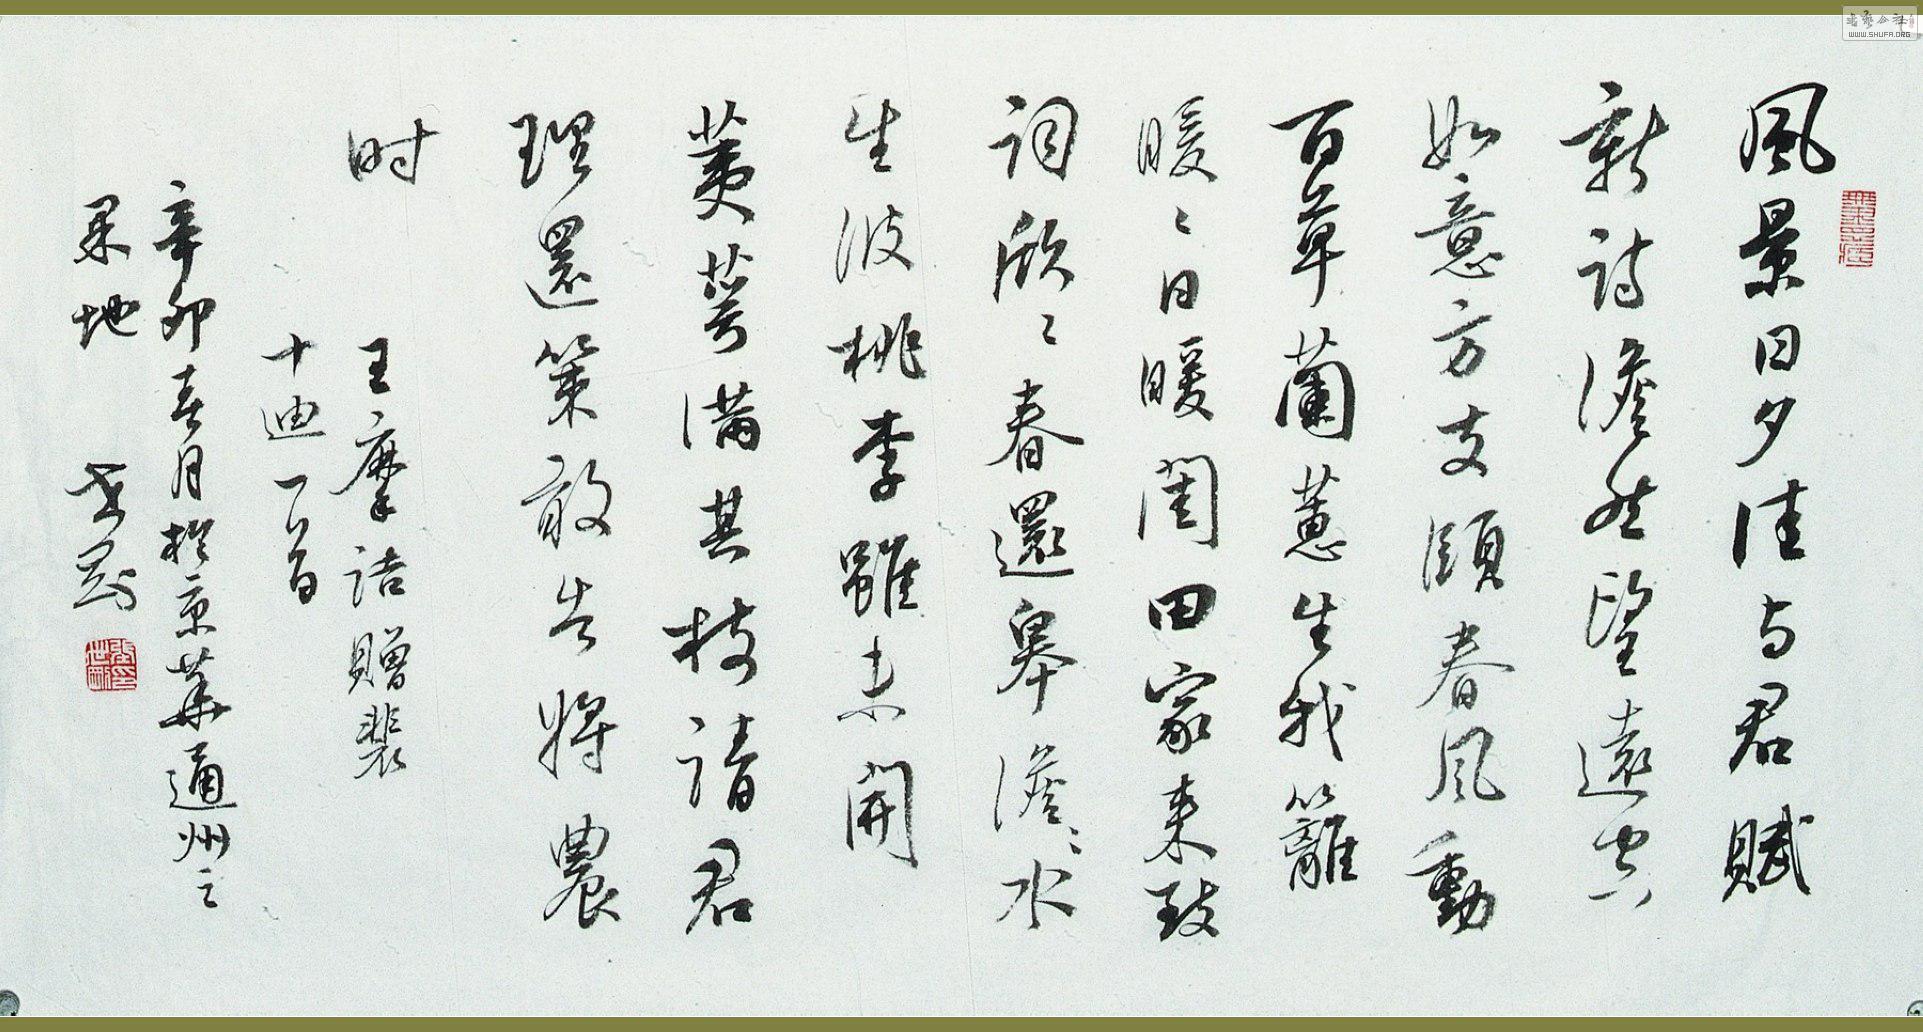 風景日夕佳与君賦
新詩澹然望遠空
如意方支頤春風動
百草蘭蕙生我籬
暖〻日暖閨田家来致
詞欣〻春還皋澹〻水
生波桃李雖未開
荑萼满其枝請君
理還策敢告将農
时
王摩詰贈裴
十迪一首
辛卯春月於京華通州之
果地
WWW.SHUFA.ORG